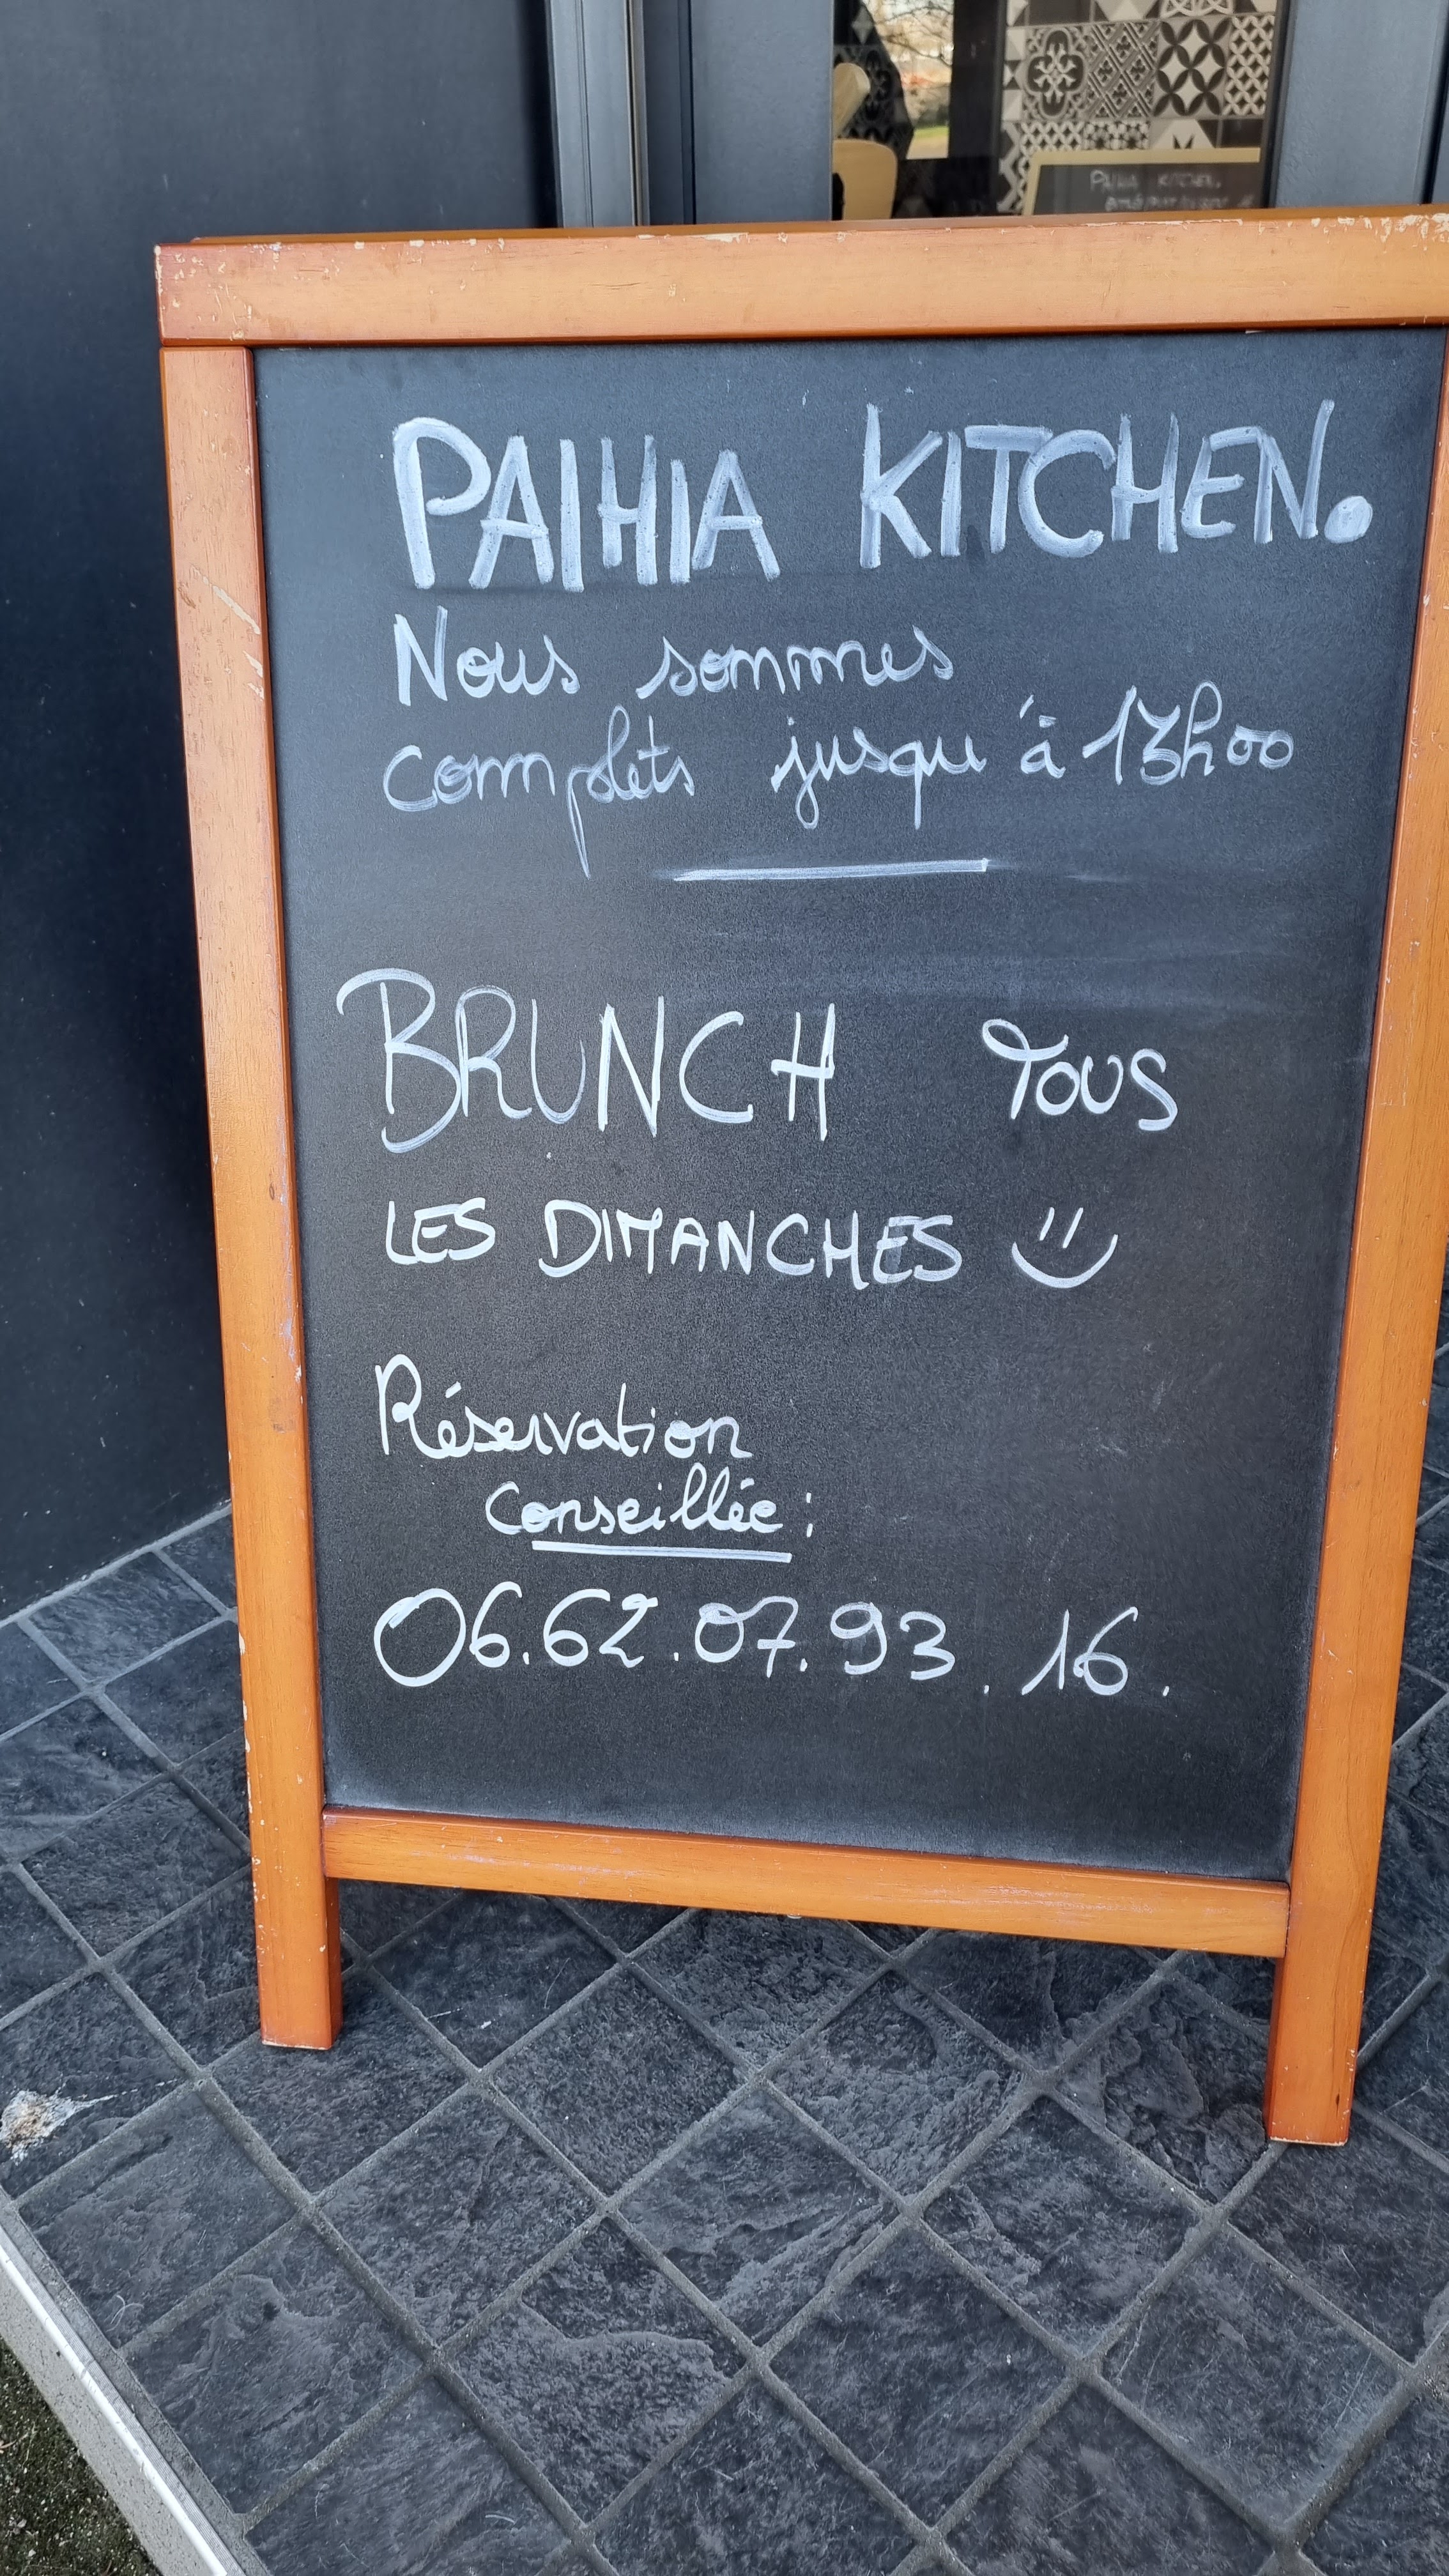 PAIHIA KITCHEN.
PAIHIA KITCHEN.
Nous sommes
complets jusqu'à 13h00
BRUNCH TOUS
LES DIMANCHES
Réservation
Conseillée :
06.62.07.93.16.